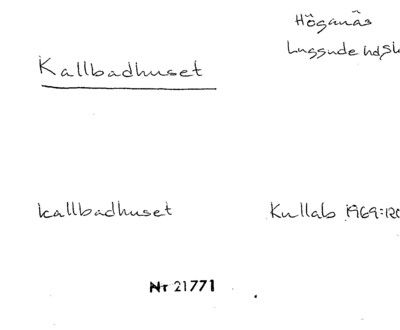 Höganäs
Luggude hd, Sk
Kallbadhuset
kallbadhuset
Kullab 1969:120
Nr 21771